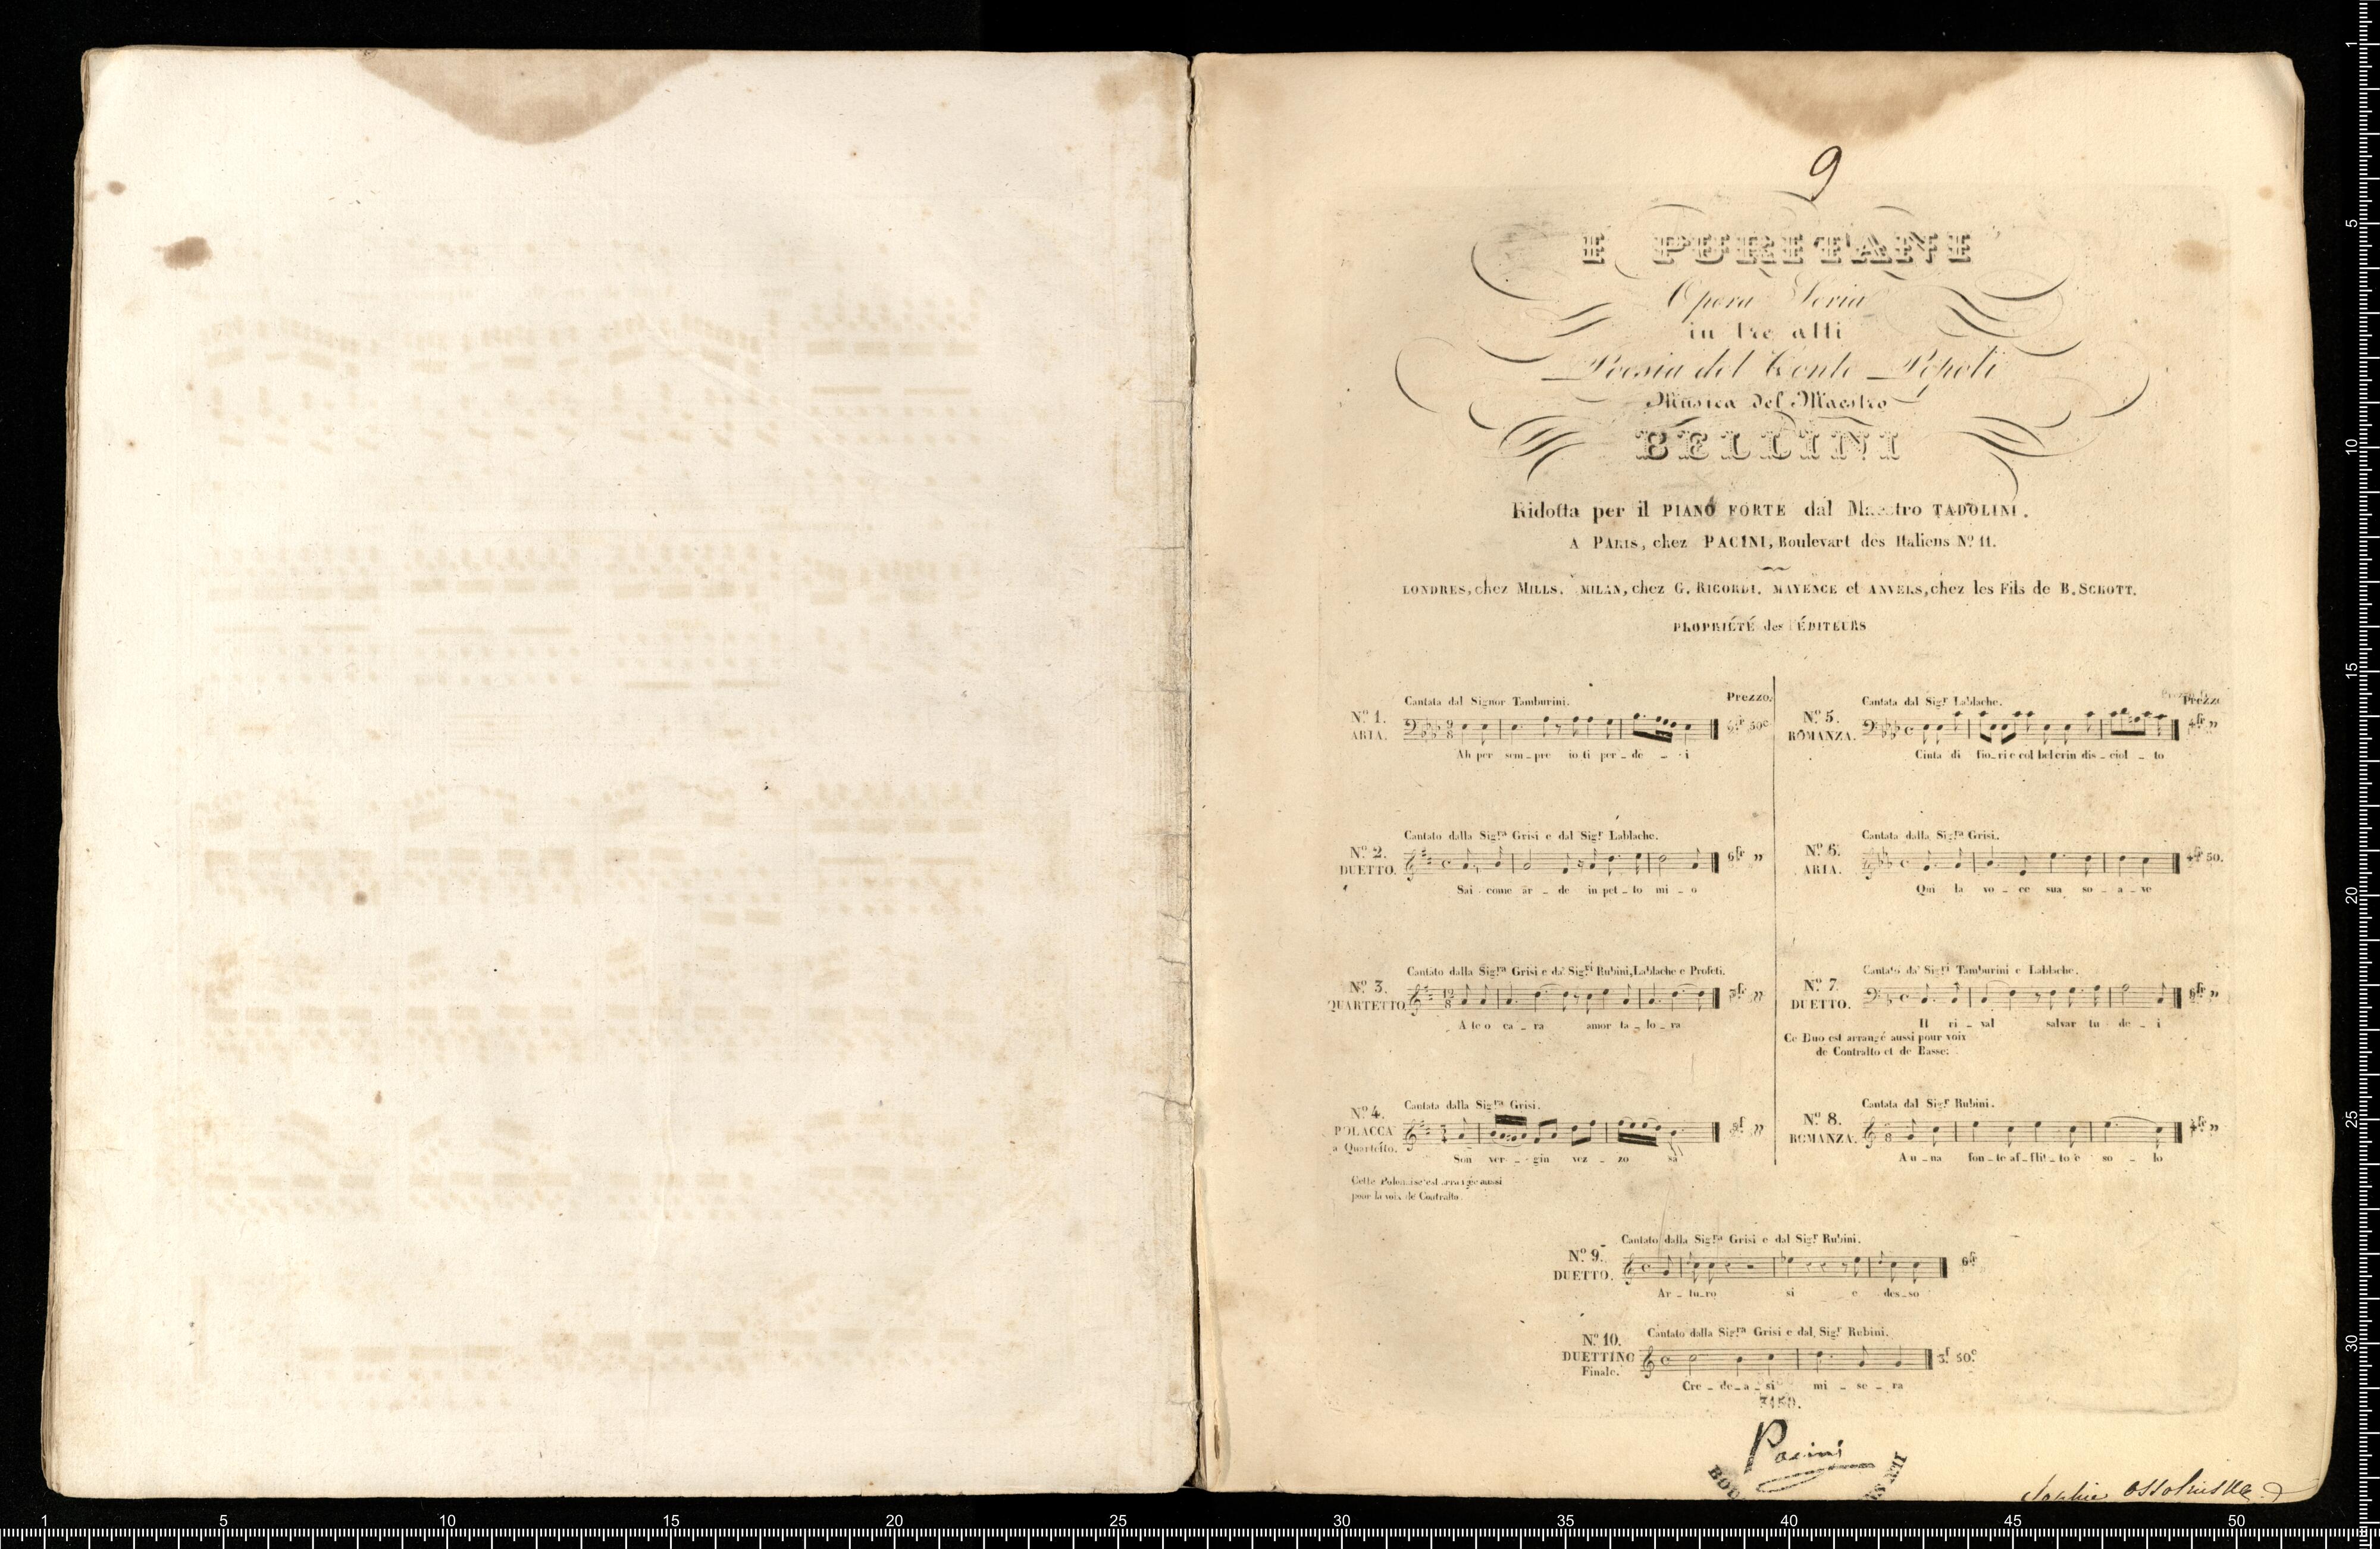 9
I PURITANI
Opera Seria
in tre atti
Poesia del Conte Pepoli
Musica del Maestro
BELLINI
Ridotta per il PIANO FORTE dal Maestro TADOLINI.
A PARIS, chez PACINI, Boulevart des Italiens Nº 11.
LONDRES, chez MILLS. MILAN, chez G. RICORDI. MAYENCE et ANVERS, chez les Fils de B. SCHOTT.
PROPRIÉTÉ des ÉDITEURS
Prezzo.
Cantata dal Signor Tamburini.
Nº 1.
ARIA.
50c
Ah per sem_pre io ti per_de_i
Cantato dalla Sigra Grisi e dal Sigr Lablache.
Nº 2.
DUETTO.
6fr „
Sai come ar_de in pet_to mi_o
Cantato dalla Sigra Grisi e da' Sigri Rubini, Lablache e Profeti.
Nº 3.
QUARTETTO
A te o ca_ra amor ta_lo_ra
Cantata dalla Sigra Grisi.
Nº 4.
POLACCA
a Quartetto.
Son ver_gin vez_zo sa
Cette Polonaise est arrangée aussi
pour la voix de Contralto.
Prezzo
Cantata dal Sigr Lablache.
Nº 5.
ROMANZA.
Cinta di fio_ri e col bel crin dis_ciol_to
Cantata dalla Sigra Grisi.
Nº 6.
ARIA.
4fr 50.
Qui la vo_ce sua so_a_ve
Cantato da' Sigri Tamburini e Lablache.
Nº 7.
DUETTO.
Il ri_val salvar tu de_i
Ce Duo est arrangé aussi pour voix
de Contralto et de Basse.
Cantata dal Sigr Rubini.
Nº 8.
ROMANZA.
A u_na fon_te af_flit_to e so_lo
Cantato dalla Sigra Grisi e dal Sigr Rubini.
Nº 9.
DUETTO.
6fr
Ar_tu_ro si e des_so
Cantato dalla Sigra Grisi e dal Sigr Rubini.
Nº 10.
DUETTINO
Finale.
3f 50c
Cre_de_a_si mi_se_ra
Pacini